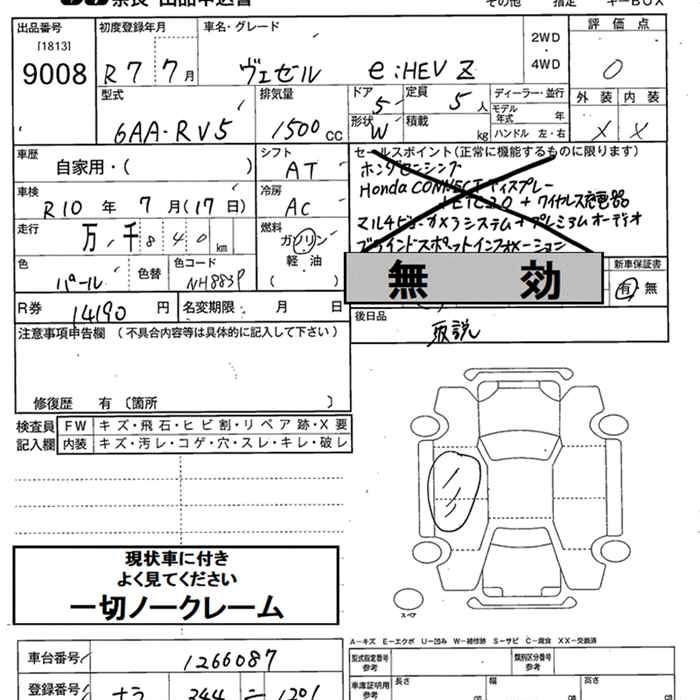 奈良 出品申込書
その他 指定 キーBOX
出品番号 初度登録年月 車名・グレード 2WD ・ 4WD 評価点
[1813]
9008 R7年7月 ヴェゼル e:HEV Z 0
型式 排気量 ドア 5 定員 5人 ディーラー・並行 外装 内装
6AA-RV5 1500cc 形状 W 積載 kg モデル年式 年 ハンドル 左・右 X X
車歴 シフト セールスポイント(正常に機能するものに限ります)
自家用・( ) AT ホンダセンシング
車検 冷房 Honda CONNECTディスプレー
R10年 7月(17日) AC +ETC2.0 + ワイヤレス充電器
走行 燃料 マルチビューカメラシステム+プレミアムオーディオ
万 千 8 4 0 km ガソリン ブラインドスポットインフォメーション
色 色替 色コード 軽・油 無効 新車保証書
パール NH883P ( ) 有 無
R券 14190 円 名変期限 月 日
注意事項申告欄 (不具合内容等は具体的に記入して下さい) 後日品
取説
修復歴 有 〔箇所 〕
検査員 FW キズ・飛石・ヒビ割・リペア跡・X要
記入欄 内装 キズ・汚レ・コゲ・穴・スレ・キレ・破レ
現状車に付き
よく見てください
一切ノークレーム
スペア
A-キズ E-エクボ U-凹み W-補修跡 S-サビ C-腐食 XX-交換済
車台番号 1266087 型式指定番号 参考 類別区分番号 参考
登録番号 ナラ 344 に 1201 車庫証明用 参考 長さ 幅 高さ